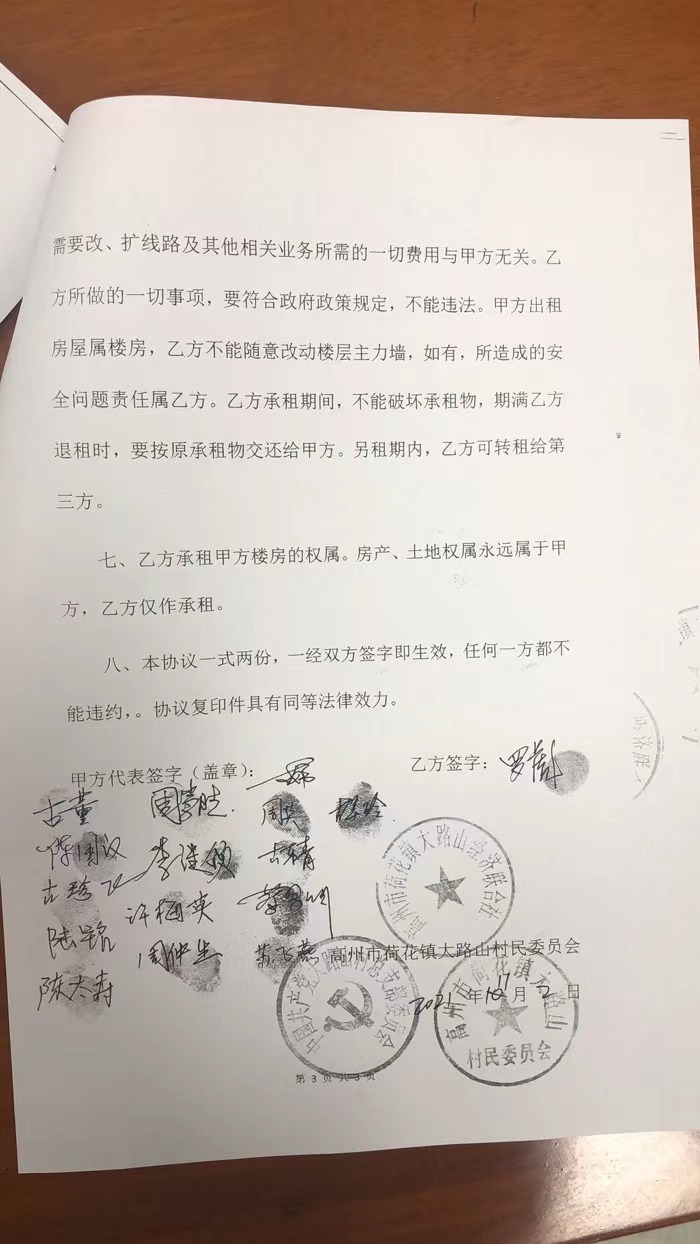 需要改、扩线路及其他相关业务所需的一切费用与甲方无关。乙
方所做的一切事项，要符合政府政策规定，不能违法。甲方出租
房屋属楼房，乙方不能随意改动楼层主力墙，如有，所造成的安
全问题责任属乙方。乙方承租期间，不能破坏承租物，期满乙方
退租时，要按原承租物交还给甲方。另租期内，乙方可转租给第
三方。
七、乙方承租甲方楼房的权属。房产、土地权属永远属于甲
方，乙方仅作承租。
八、本协议一式两份，一经双方签字即生效，任何一方都不
能违约，。协议复印件具有同等法律效力。
甲方代表签字（盖章）：
乙方签字：
古董
许梅英
陈太寿
高州市荷花镇大路山经济联合社
高州市荷花镇大路山村民委员会
2021年 月 日
中国共产党 大路山村总支部委员会
高州市荷花镇大路山
村民委员会
第 3 页 共 3 页